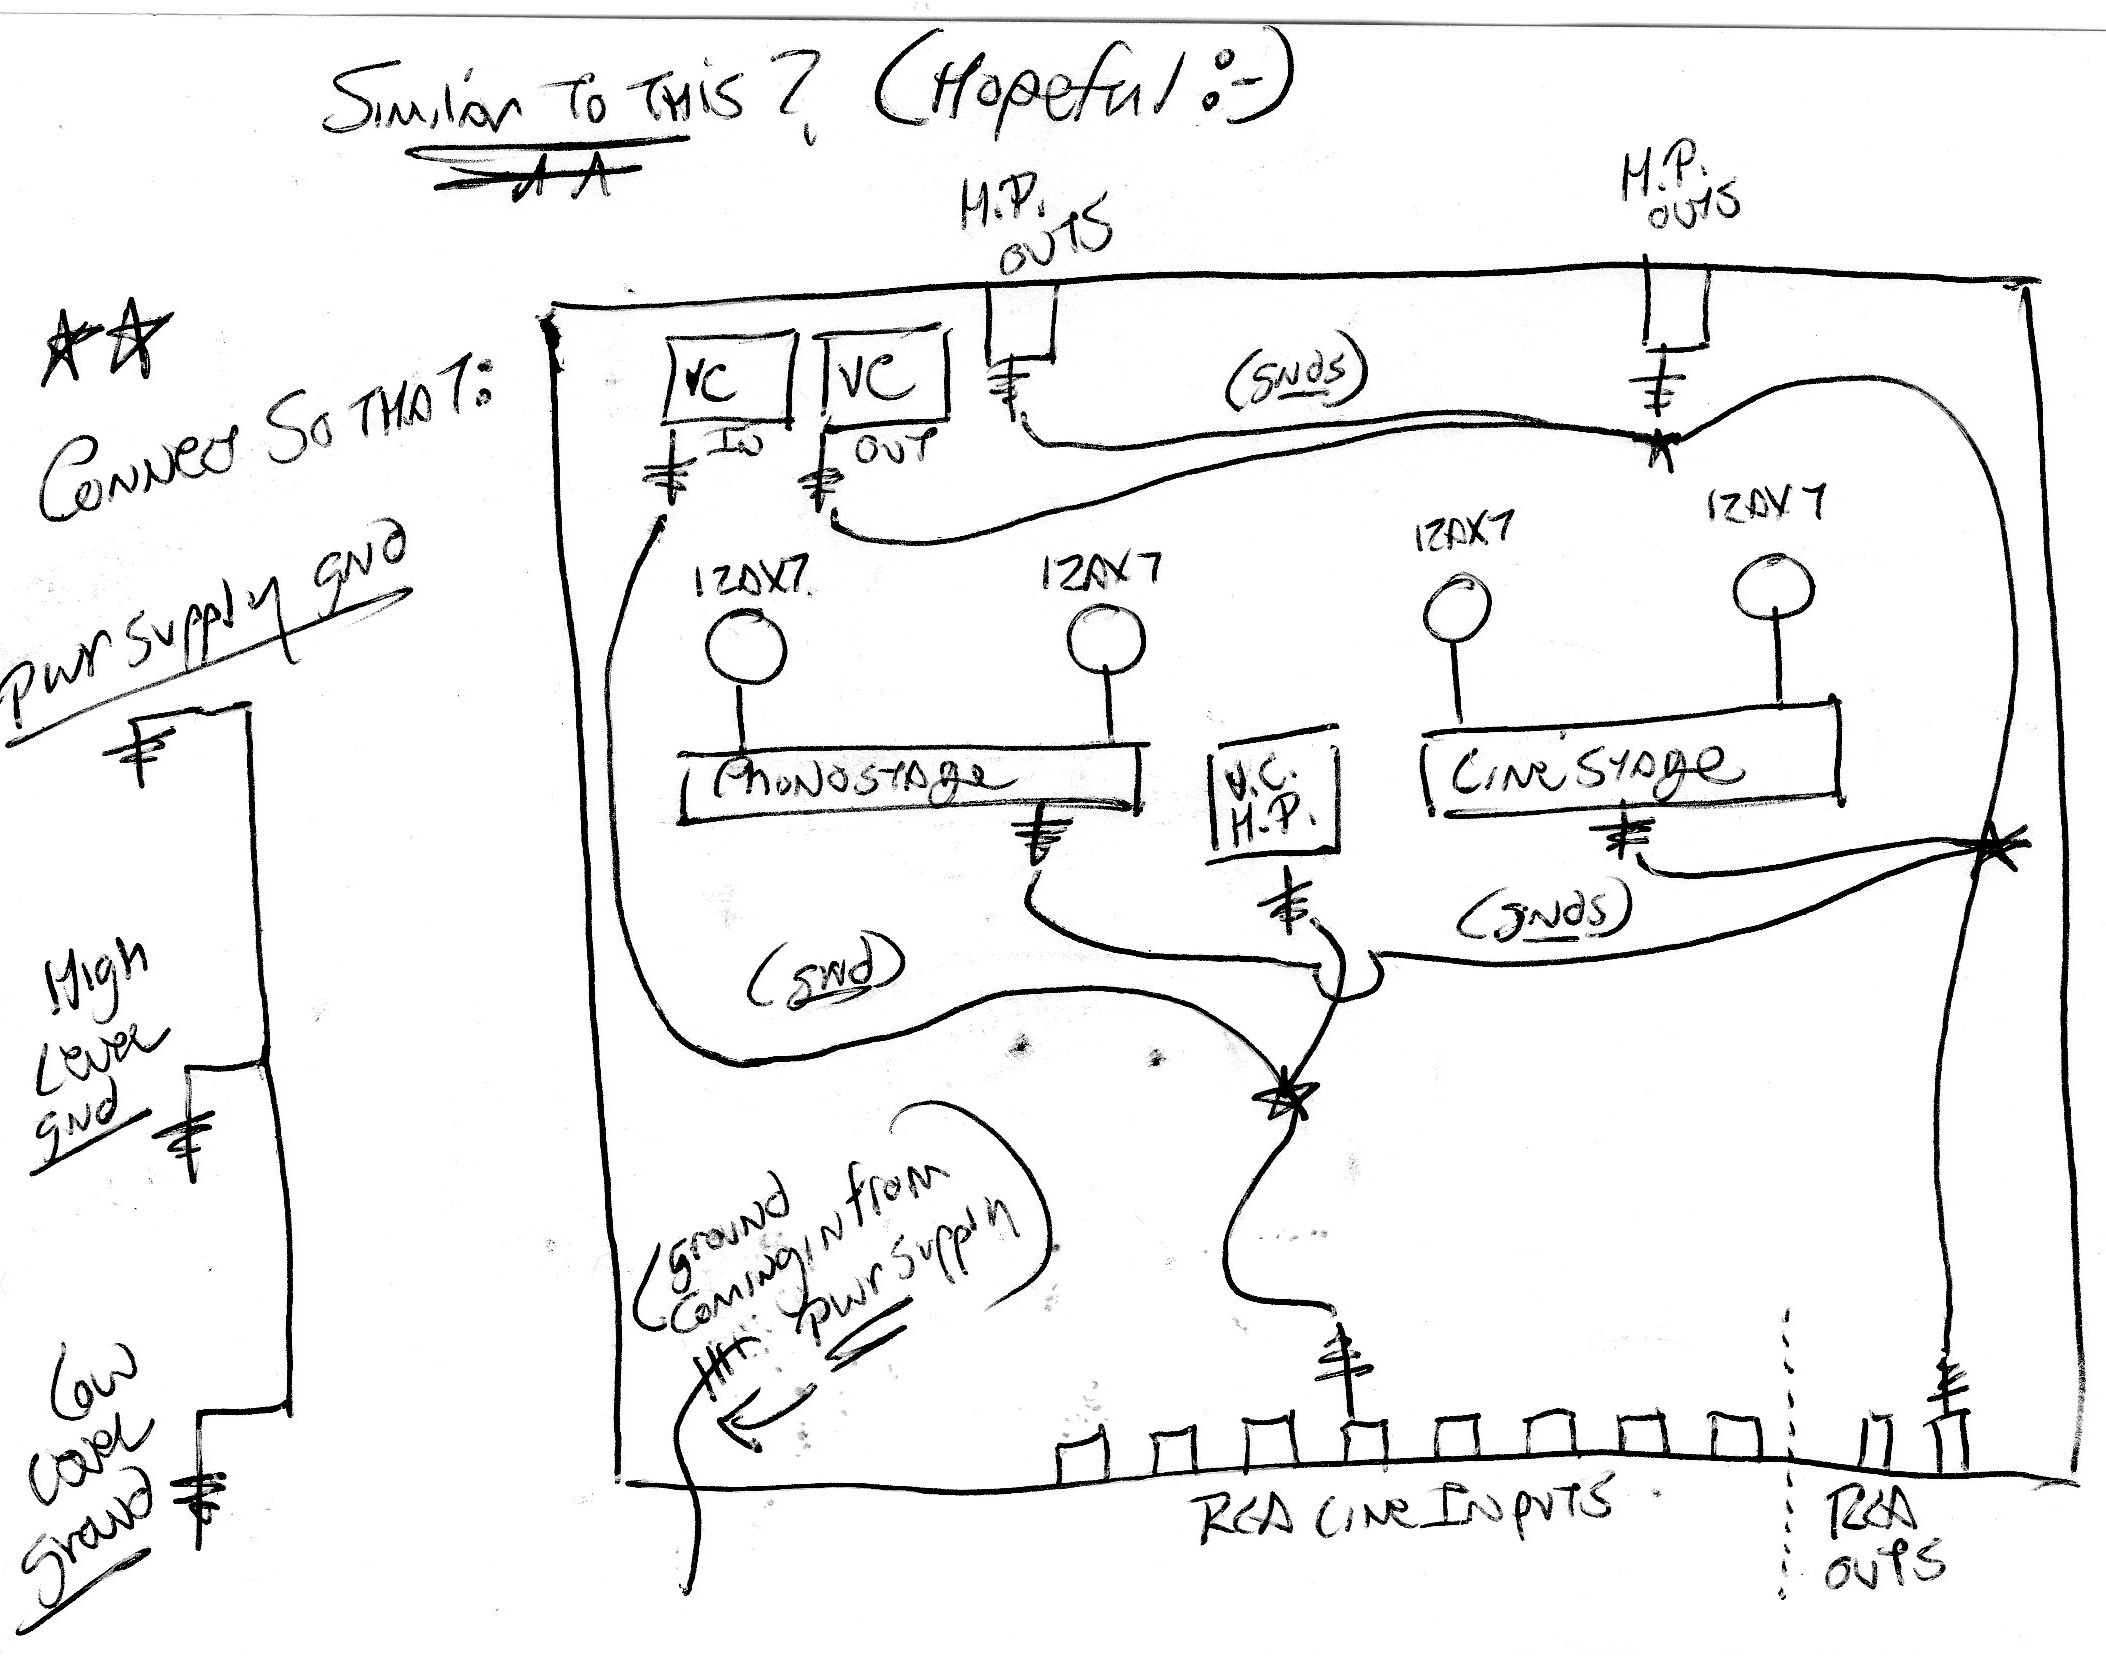 Similar To THis? (Hopeful :-)
H.P.
OUTS
H.P.
OUTS
Connect So THAT:
VC
IN
VC
OUT
(gnds)
12AX7
12AX7
12AX7
12AX7
pwr supply gnd
Phonostage
V.C.
H.P.
Line Stage
(gnds)
(gnd)
High
Level
gnd
(ground
coming in from
pwr supply)
Low
Level
ground
RCA Line Inputs
RCA
OUTS